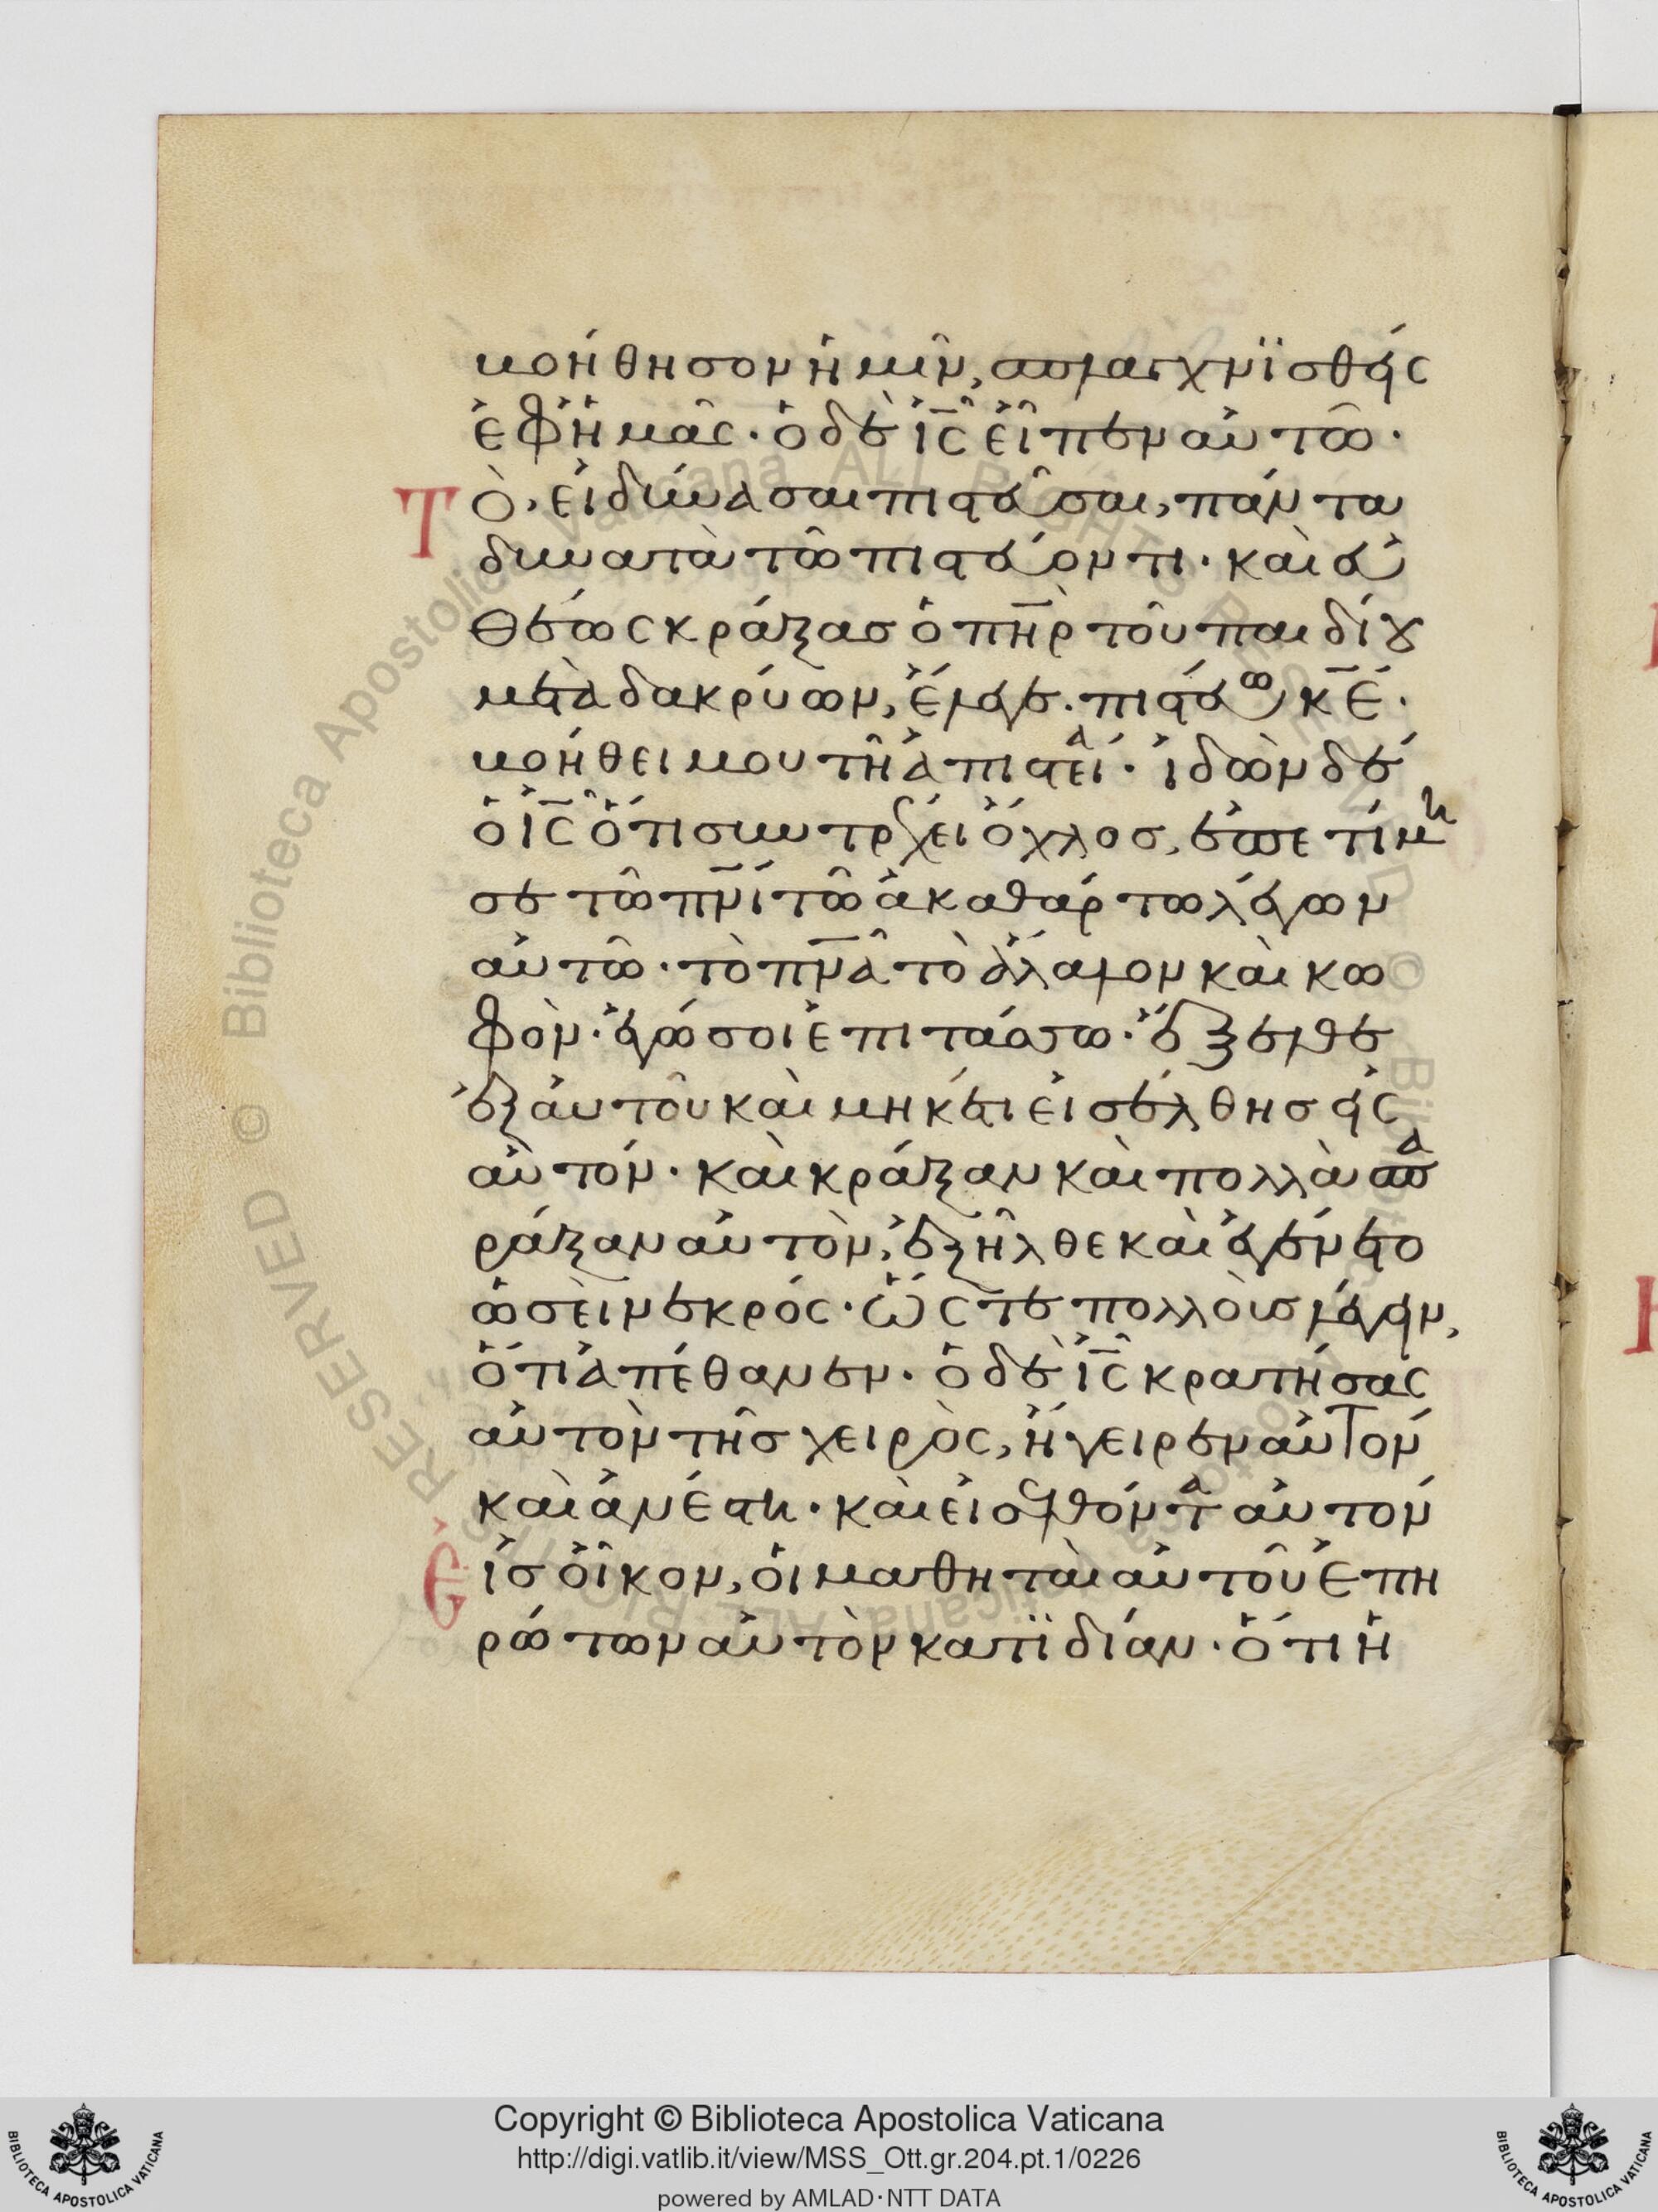 μοήθησον ἡμῖν, σπλαγχνϊσθείς
ἐφ' ἡμᾶς· ὁ δὲ ἰς εἶπεν αὐτῶ·
Τὸ, εἰ δύνασαι πιστεῦσαι, πάντα
δυνατὰ τῶ πιστεύοντι· καὶ εὐ
θέως κράξας ὁ πηρ τοῦ παιδίου
μετὰ δακρύων, ἔλεγε· πιστεύω κε·
μοήθει μου τῆ ἀπιστεία· ἰδὼν δέ
ὁ ις ὅτι συντρέχει ὄχλος, ἐπετίμη
σε τῶ πνι τῶ ἀκαθάρτω λέγων
αὐτῶ· τὸ πνα τὸ ἄλαλον καὶ κω
φὸν· ἐγώ σοι ἐπιτάσσω· ἔξελθε
ἐξ αὐτοῦ καὶ μηκέτι εἰσέλθης εἰς
αὐτόν· καὶ κράξαν καὶ πολλὰ σπα
ράξαν αὐτὸν, ἐξῆλθε καὶ ἐγένετο
ὡσεὶ νεκρός· ὥστε πολλοὺς λέγειν,
ὅτι ἀπέθανεν· ὁ δὲ ις κρατήσας
αὐτὸν τῆς χειρὸς, ἤγειρεν αὐτόν
καὶ ἀνέστη· καὶ εἰσελθόντα αὐτόν
Εἰς οἶκον, οἱ μαθηταὶ αὐτοῦ ἐπη
ρώτων αὐτὸν κατϊδίαν· ὅτι ἡ
Copyright © Biblioteca Apostolica Vaticana
http://digi.vatlib.it/view/MSS_Ott.gr.204.pt.1/0226
powered by AMLAD·NTT DATA
BIBLIOTECA APOSTOLICA VATICANA
BIBLIOTECA APOSTOLICA VATICANA